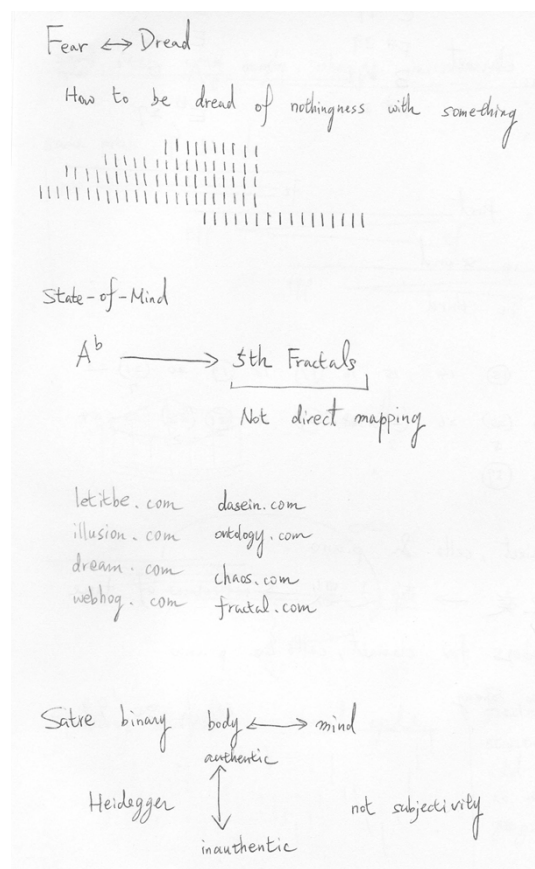 Fear ↔ Dread
How to be dread of nothingness with something
State-of-Mind
A^b → 5th Fractals
Not direct mapping
letitbe.com dasein.com
illusion.com ontology.com
dream.com chaos.com
webhog.com fractal.com
Satre binary body ↔ mind
authentic
Heidegger ↕ not subjectivity
inauthentic